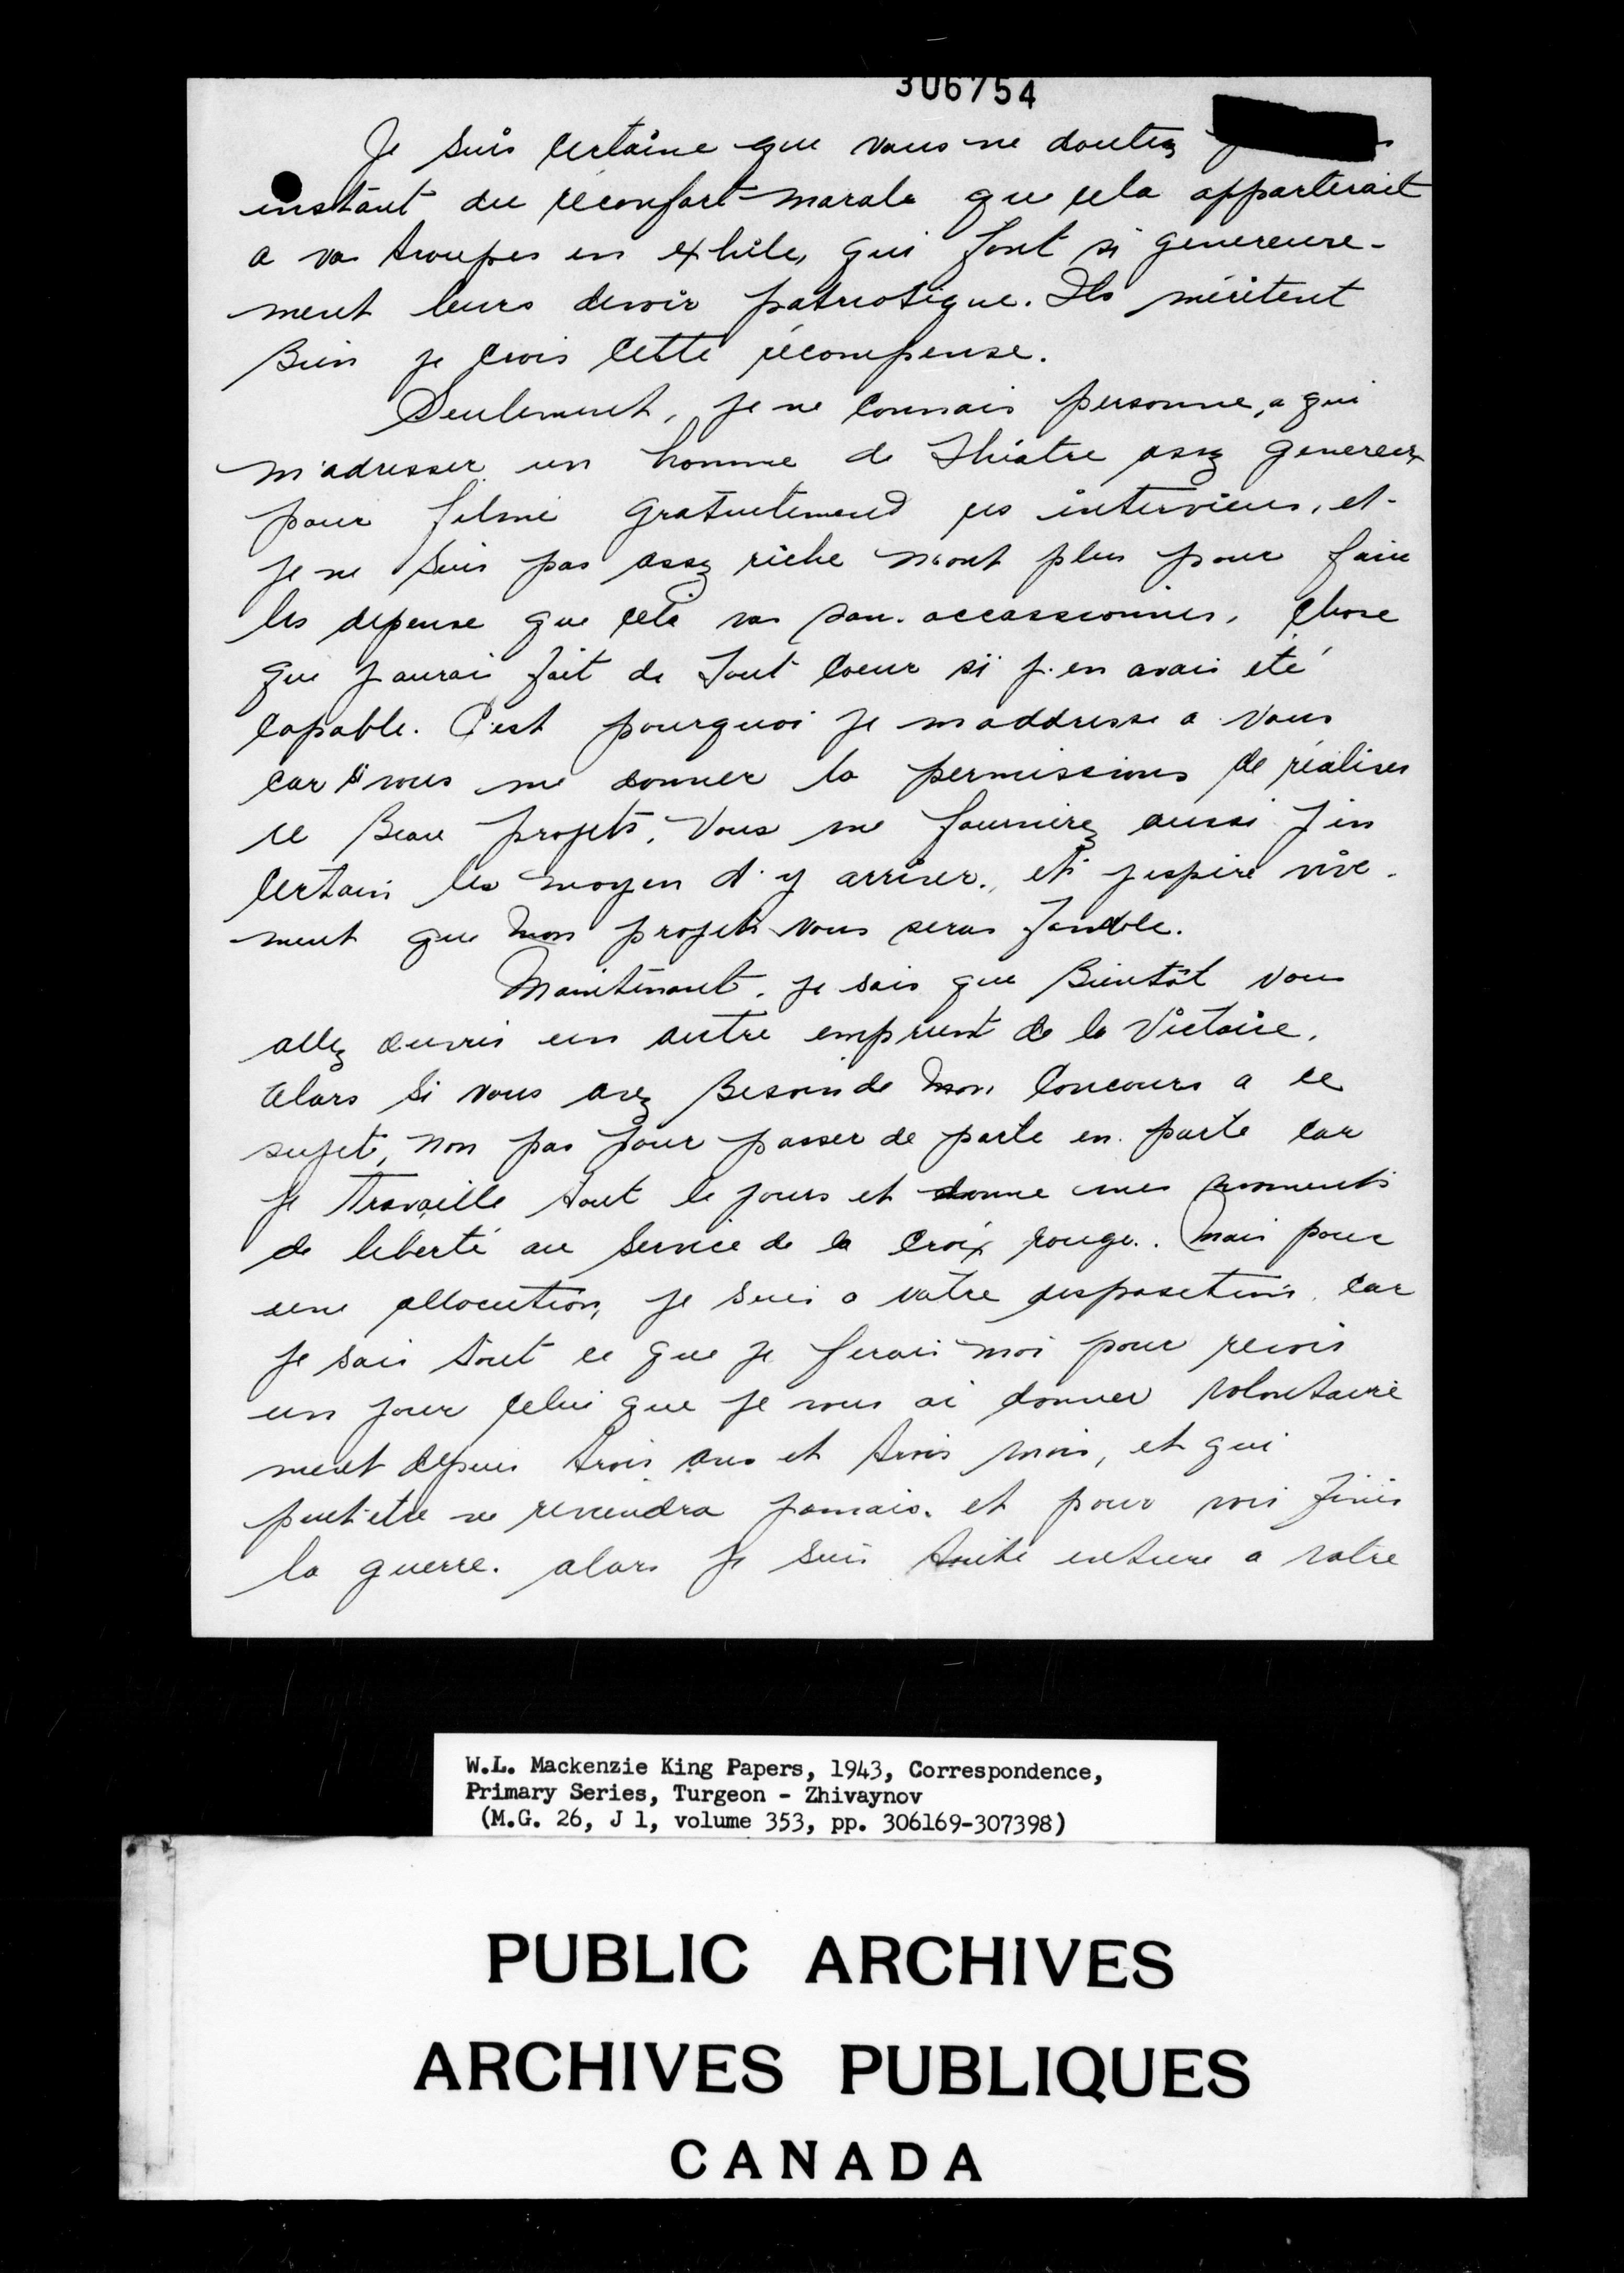 306754
Je suis certaine que vous ne doutez
instant du réconfort morale que cela apporterait
a vos troupes en exhile, qui font si genereuse-
ment leurs devoir patriotique. Ils méritent
Bien je crois cette récompense.
Seulement, je ne connais personne, a qui
m'adresser un homme de Théatre assez genereux
pour filmé gratuitement ces interviews, et
je ne suis pas assez riche non plus pour faire
les depense que cela va occassionnés, chose
que j'aurai fait de tout coeur si j'en avais été
capable. C'est pourquoi je m'addresse a vous
car si vous me donner la permissions de réaliser
ce Beau projets, Vous me fournirez aussi j'en
certain les moyen d'y arriver, et j'espère vive-
ment que mon projets vous seras
Maintenant, je sais que Bientôt vous
allez ouvrir un autre emprunt de la Victoire,
alors si vous avez Besoin de mon concours a ce
sujet, non pas pour passer de porte en porte car
je Travaille tout le jours et donne mes moments
de liberté au service de la Croix rouge. Mais pour
une allocution, je suis a votre disposition, car
je sais tout ce que je ferais moi pour revoir
un jour celui que je vous ai donner volontaire
ment depuis trois ans et trois mois, et qui
peut-etre ne reviendra jamais. et pour voir finir
la guerre. alors je suis toute entiere a votre
W.L. Mackenzie King Papers, 1943, Correspondence,
Primary Series, Turgeon - Zhivaynov
(M.G. 26, J 1, volume 353, pp. 306169-307398)
PUBLIC ARCHIVES
ARCHIVES PUBLIQUES
CANADA